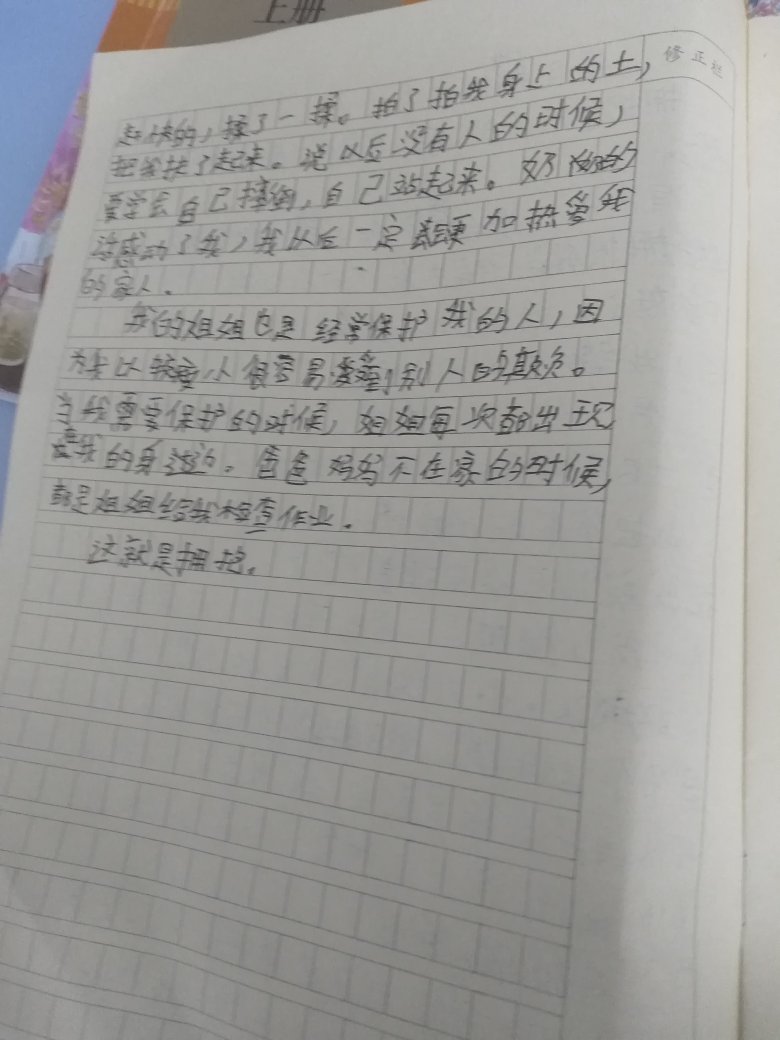 上册
修正栏
赶快的，揉了一揉。拍了拍我身上的土，
把我扶了起来。说以后没有人的时候，
要学会自己摔倒，自己站起来。奶奶的
话感动了我，我以后一定要更加热爱我
的家人。
我的姐姐也是经常保护我的人，因
为我以较小很容易受到别人的欺负。
当我需要保护的时候，姐姐每次都出现
在我的身边。爸爸妈妈不在家的时候，
都是姐姐给我检查作业。
这就是拥抱。